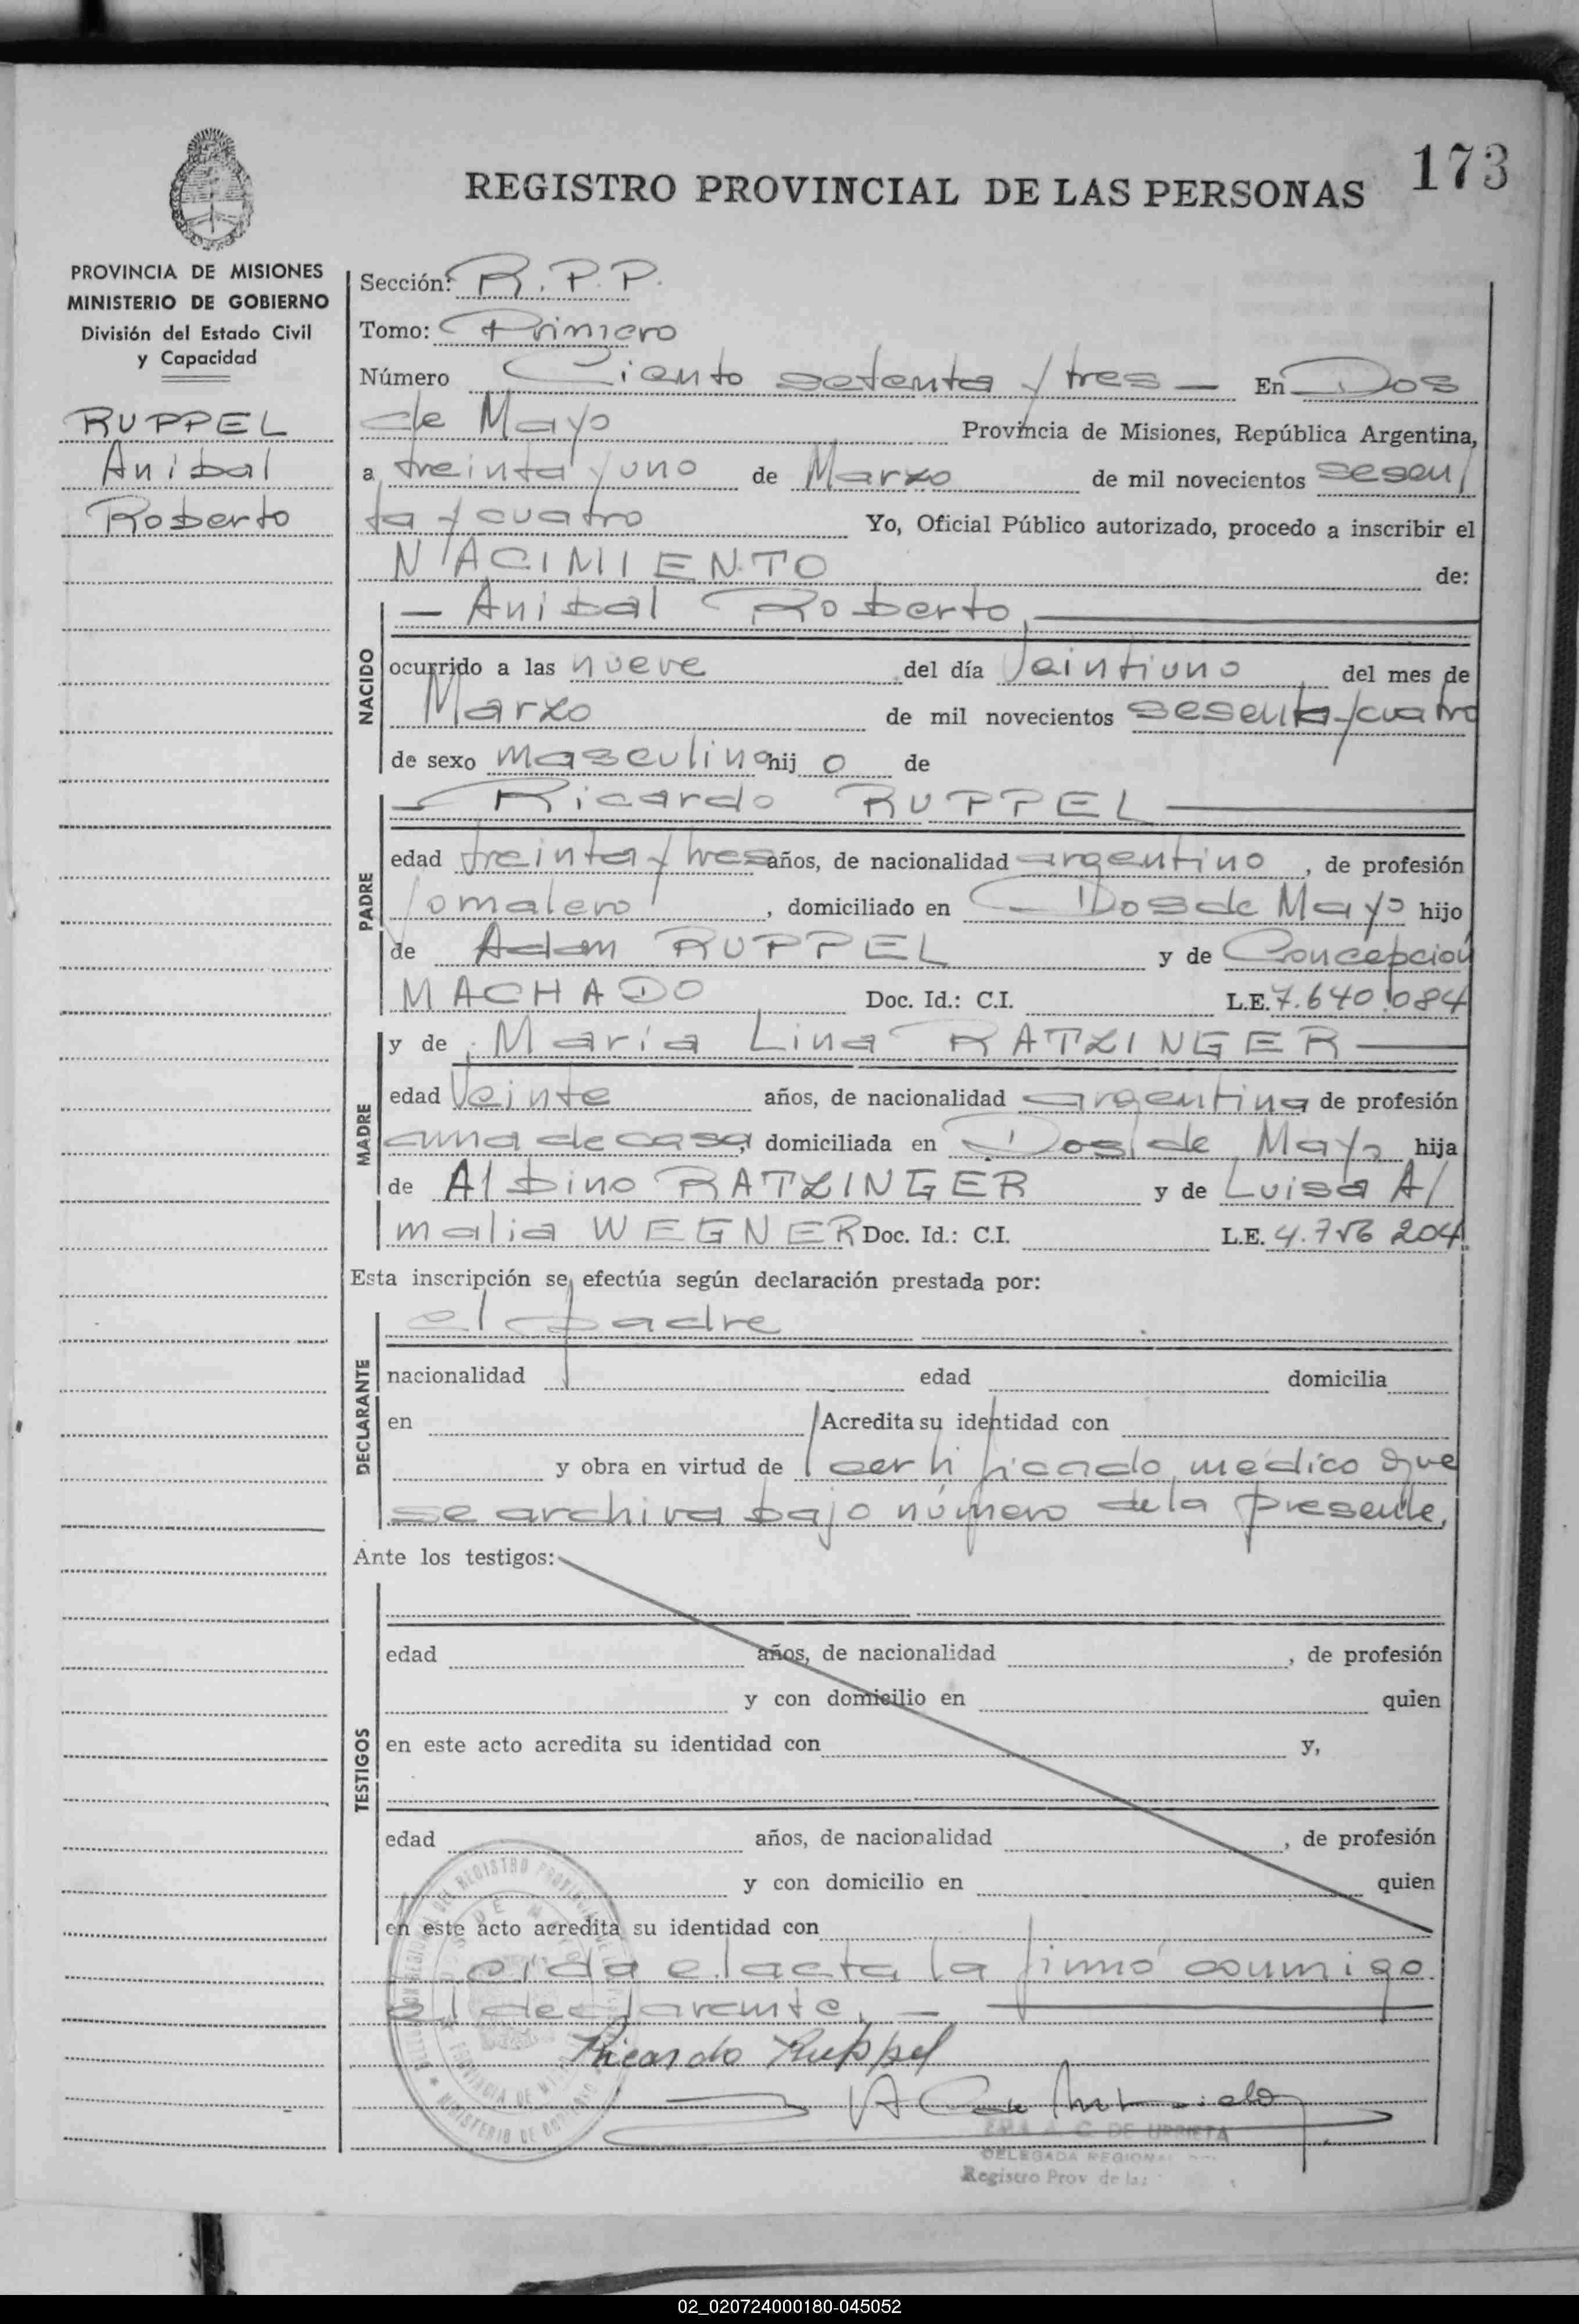 173
REGISTRO PROVINCIAL DE LAS PERSONAS
PROVINCIA DE MISIONES
MINISTERIO DE GOBIERNO
División del Estado Civil
y Capacidad
RUPPEL
Anibal
Roberto
Sección: R.P.P.
Tomo: Primero
Número Ciento setenta y tres — En Dos
de Mayo Provincia de Misiones, República Argentina,
a treinta y uno de Marzo de mil novecientos sesen/
ta y cuatro Yo, Oficial Público autorizado, procedo a inscribir el
NACIMIENTO de:
NACIDO
— Anibal Roberto,
ocurrido a las nueve del día veintiuno del mes de
Marzo de mil novecientos sesenta y cuatro
de sexo masculino hijo de
PADRE
— Ricardo RUPPEL
edad treinta y tres años, de nacionalidad argentino, de profesión
jornalero, domiciliado en Dos de Mayo hijo
de Adam RUPPEL y de Concepción
MACHADO Doc. Id.: C.I. L.E. 7.640.084
MADRE
y de María Lina RATZINGER
edad veinte años, de nacionalidad argentina de profesión
ama de casa, domiciliada en Dos de Mayo hija
de Albino RATZINGER y de Luisa A/
malia WEGNER Doc. Id.: C.I. L.E. 4.756 204
Esta inscripción se efectúa según declaración prestada por:
DECLARANTE
el padre
nacionalidad edad domicilia
en Acredita su identidad con
y obra en virtud de certificado medico que
se archiva bajo número de la presente,
Ante los testigos:
TESTIGOS
edad años, de nacionalidad , de profesión
y con domicilio en quien
en este acto acredita su identidad con y,
edad años, de nacionalidad , de profesión
y con domicilio en quien
en este acto acredita su identidad con
oida el acta la firmó conmigo
el declarante, —
Ricardo Ruppel
A. C. DE URRIETA
DELEGADA REGIONAL
Registro Prov de las
02_020724000180-045052